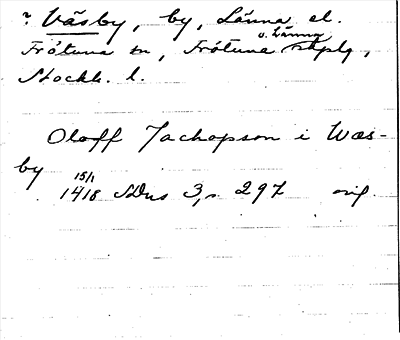 ? Väsby, by, Länna el.
Frötuna sn, Frötuna o. Länna skplg,
Stockh. l.
Oloff Jachopson i Wæs-
by
15/1
1418 SDns 3, s. 297 orig.